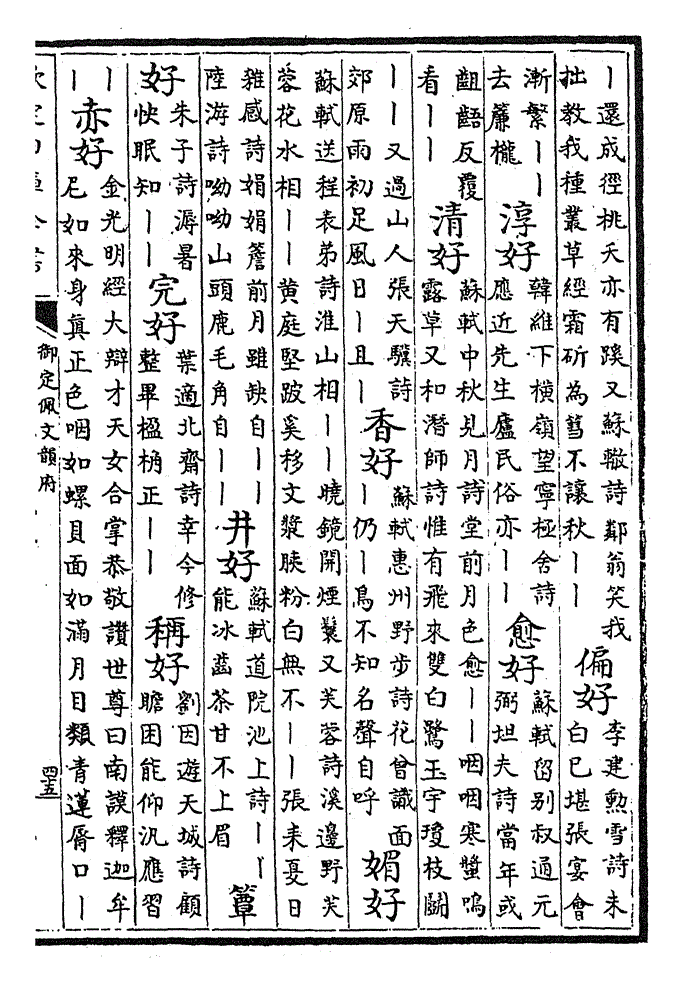 丨還成徑桃夭亦有蹊又蘇轍詩鄰翁笑我
拙教我種叢草經霜斫為篲不讓秋丨丨
偏好
李建勲雪詩未
白已堪張宴會
漸繁丨丨
去簾櫳
淳好
韓維下橫嶺望寧極舍詩
應近先生廬民俗亦丨丨
愈好
蘇軾留別叔通元
弼坦夫詩當年或
齟齬反覆
看丨丨
清好
蘇軾中秋見月詩堂前月色愈丨丨咽咽寒螿鳴
露草又和潛師詩惟有飛來雙白鷺玉宇瓊枝鬭
丨丨又過山人張天驥詩
郊原雨初足風日丨且丨
香好
蘇軾惠州野步詩花曾識面
丨仍丨鳥不知名聲自呼
媚好
蘇軾送程表弟詩淮山相丨丨曉鏡開煙鬟又芙蓉詩溪邊野芙
蓉花水相丨丨黄庭堅跛奚移文漿胰粉白無不丨丨張耒夏日
雜感詩娟娟簷前月雖缺自丨丨
陸游詩呦呦山頭鹿毛角自丨丨
井好
蘇軾道院池上詩丨丨
能冰齒茶甘不上眉
簟
好
朱子詩溽暑
快眠知丨丨
完好
葉適北齋詩幸今修
整畢楹桷正丨丨
稱好
劉因遊天城詩顧
瞻困能仰汎應習
丨
丨
赤好
金光明經大辯才天女合掌恭敬讚世尊曰南謨釋迦牟
尼如來身真正色咽如螺貝面如滿月目類青蓮脣口丨
欽定四庫全書
御定佩文韻府
四五